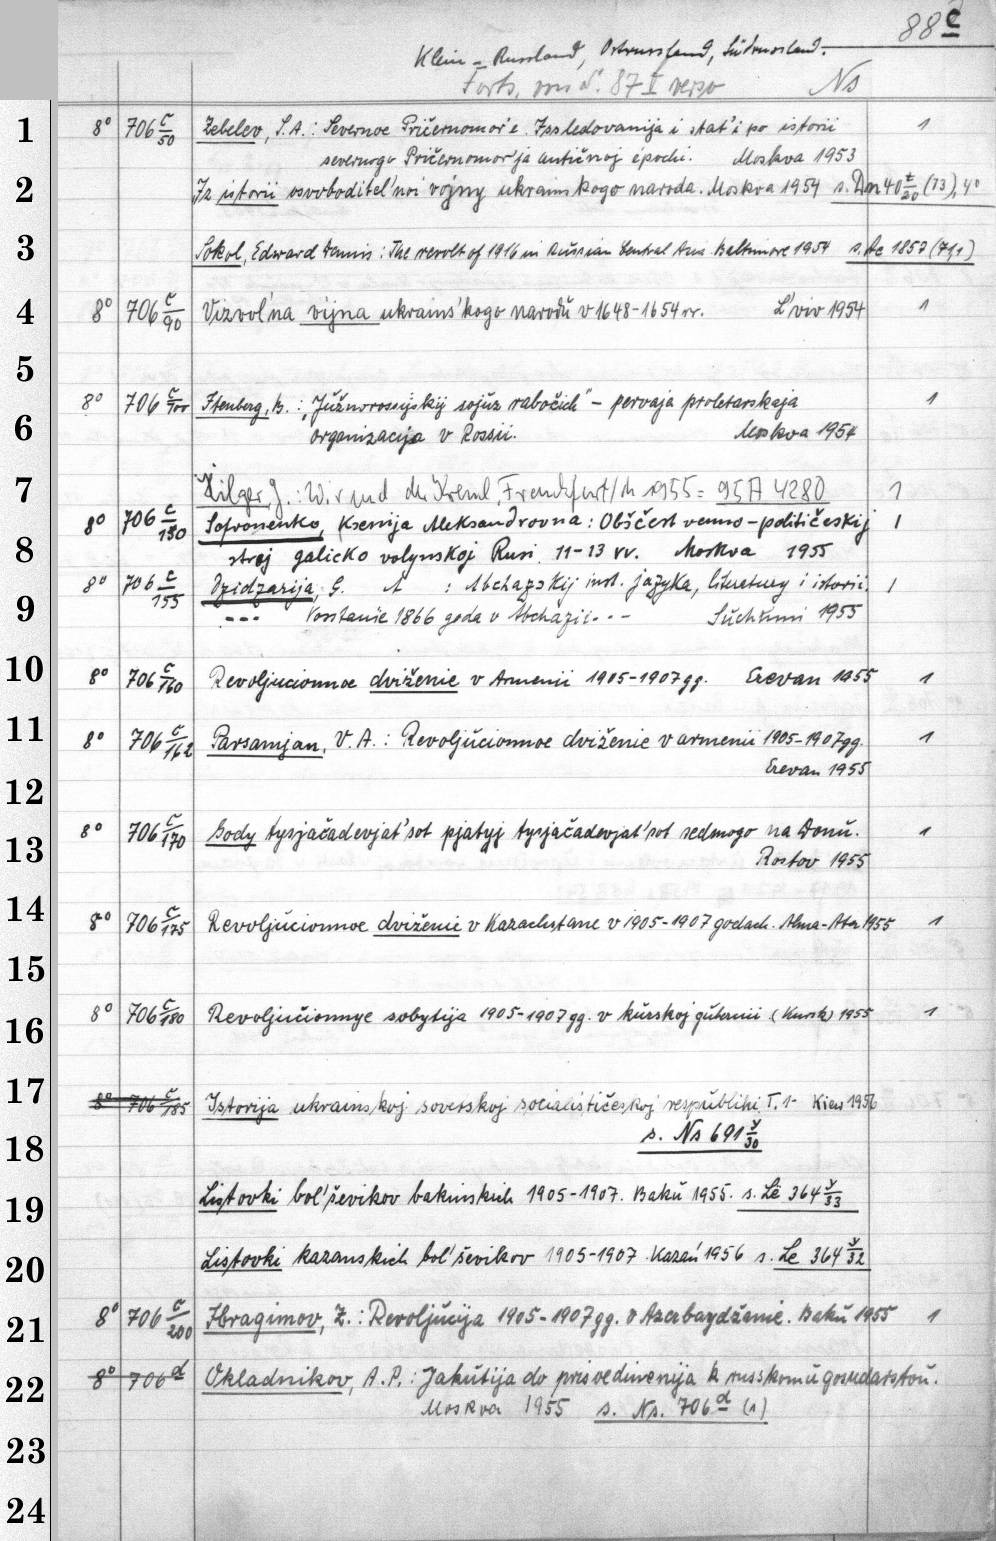 88 e
Klein-Russland, Ostrussland, Südrussland.
Forts. von S. 87 I verso Ns
1 8° 706 c/50 Žebelev, S.A.: Severnoe Pričernomor'e. Issledovanija i stat'i po istorii 1
severnogo Pričernomor'ja antičnoj épochi. Moskva 1953
2 Iz istorii osvoboditel'noi vojny ukrainskogo naroda. Moskva 1954 s. Dm 40 t/20 (73), 40
3 Sokol, Edward Dennis: The revolt of 1916 in Russian Central Asia. Baltimore 1954 s. Ac 1857 (71,1)
4 8° 706 c/90 Vizvol'na vijna ukrains'kogo narodu v 1648-1654 rr. L'viv 1954 1
5
8° 706 c/100 Itenberg, B.: „Južnorossijskij sojuz rabočich" - pervaja proletarskaja 1
6 organizacija v Rossii. Moskva 1954
7 Hilger, G.: Wir und der Kreml, Frankfurt/M 1955 = 95 A 4280 1
8° 706 c/150 Sofronenko, Ksenija Aleksandrovna: Obščestvenno-političeskij 1
8 stroj galicko volynskoj Rusi 11-13 vv. Moskva 1955
8° 706 c/155 Dzidzarija, G. A : Abchazskij inst. jazyka, literatury i istorii. 1
9 --- Vosstanie 1866 goda v Abchazii --- Suchumi 1955
10 8° 706 c/160 Revoljucionnoe dviženie v Armenii 1905-1907 gg. Erevan 1955 1
11 8° 706 c/162 Parsamjan, V. A.: Revoljucionnoe dviženie v armenii 1905-1907 gg. 1
Erevan 1955
12
8° 706 c/170 Gody tysjačadevjat'sot pjatyj tysjačadevjat'sot sedmogo na Donu. 1
13 Rostov 1955
14 8° 706 c/175 Revoljucionnoe dviženie v Kazachstane v 1905-1907 godach. Alma-Ata 1955 1
15
16 8° 706 c/180 Revoljucionnye sobytija 1905-1907 gg. v kurskoj gubernii (Kursk) 1955 1
17 8° 706 c/185 Istorija ukrainskoj sovetskoj socialističeskoj respubliki T. 1- Kiew 1956
18 s. Ns 691 y/30
19 Listovki bol'ševikov bakinskich 1905-1907. Baku 1955. s. Le 364 y/33
20 Listovki kazanskich bol'ševikov 1905-1907 Kazań 1956 s. Le 364 y/32
21 8° 706 c/200 Ibragimov, Z.: Revoljucija 1905-1907 gg. v Azerbaydžanie. Baku 1955 1
22 8° 706 d Okladnikov, A.P.: Jakutija do prisoedinenija k russkomu gosudarstvu.
Moskva 1955 s. Ns. 706 d (1)
23
24